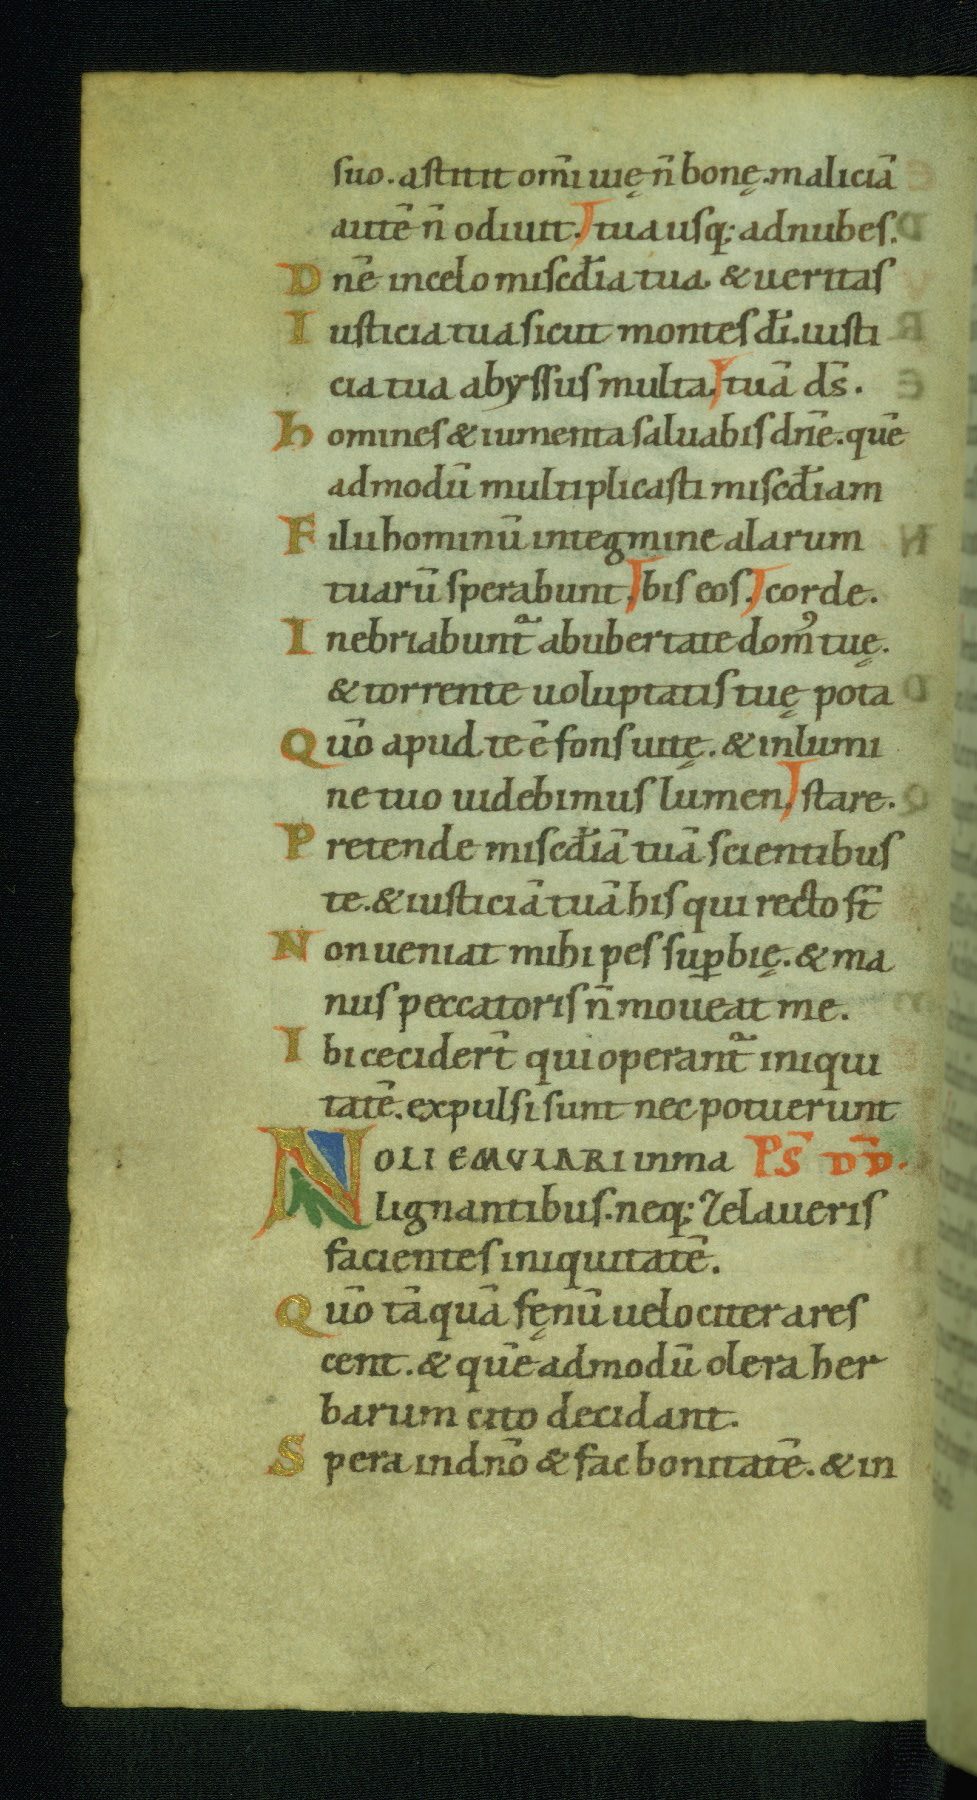 suo. astitit om̄i uię n̄ bonę. maliciā
autē n̄ odiuit. tua usq; ad nubes.
Dn̄e in celo misc̄dia tua. & ueritas
Iusticia tua sicut montes dī. iusti
cia tua abyssus multa. tuā ds̄.
homines & iumenta saluabis dn̄e. quē
admodū multiplicasti misc̄diam
Filii hominū in tegmine alarum
tuarū sperabunt. bis eos. corde.
Inebriabunt̄ ab ubertate domꝰ tuę.
& torrente uoluptatis tuę pota
Quō apud te ē fons uitę. & in lumi
ne tuo uidebimus lumen. stare.
Pretende misc̄diā tuā scientibus
te. & iusticiā tuā his qui recto st̄
Non ueniat mihi pes suꝑbię. & ma
nus peccatoris n̄ moueat me.
Ibi cecider̄t qui operant̄ iniqui
tatē. expulsi sunt nec potuerunt
NOLI EMVLARI in ma PS̄ DD̄.
lignantibus. neq; zelaueris
facientes iniquitatē.
Quō tāquā fęnū uelociter ares
cent. & quēadmodū olera her
barum cito decidant.
Spera in dn̄o & fac bonitatē. & in